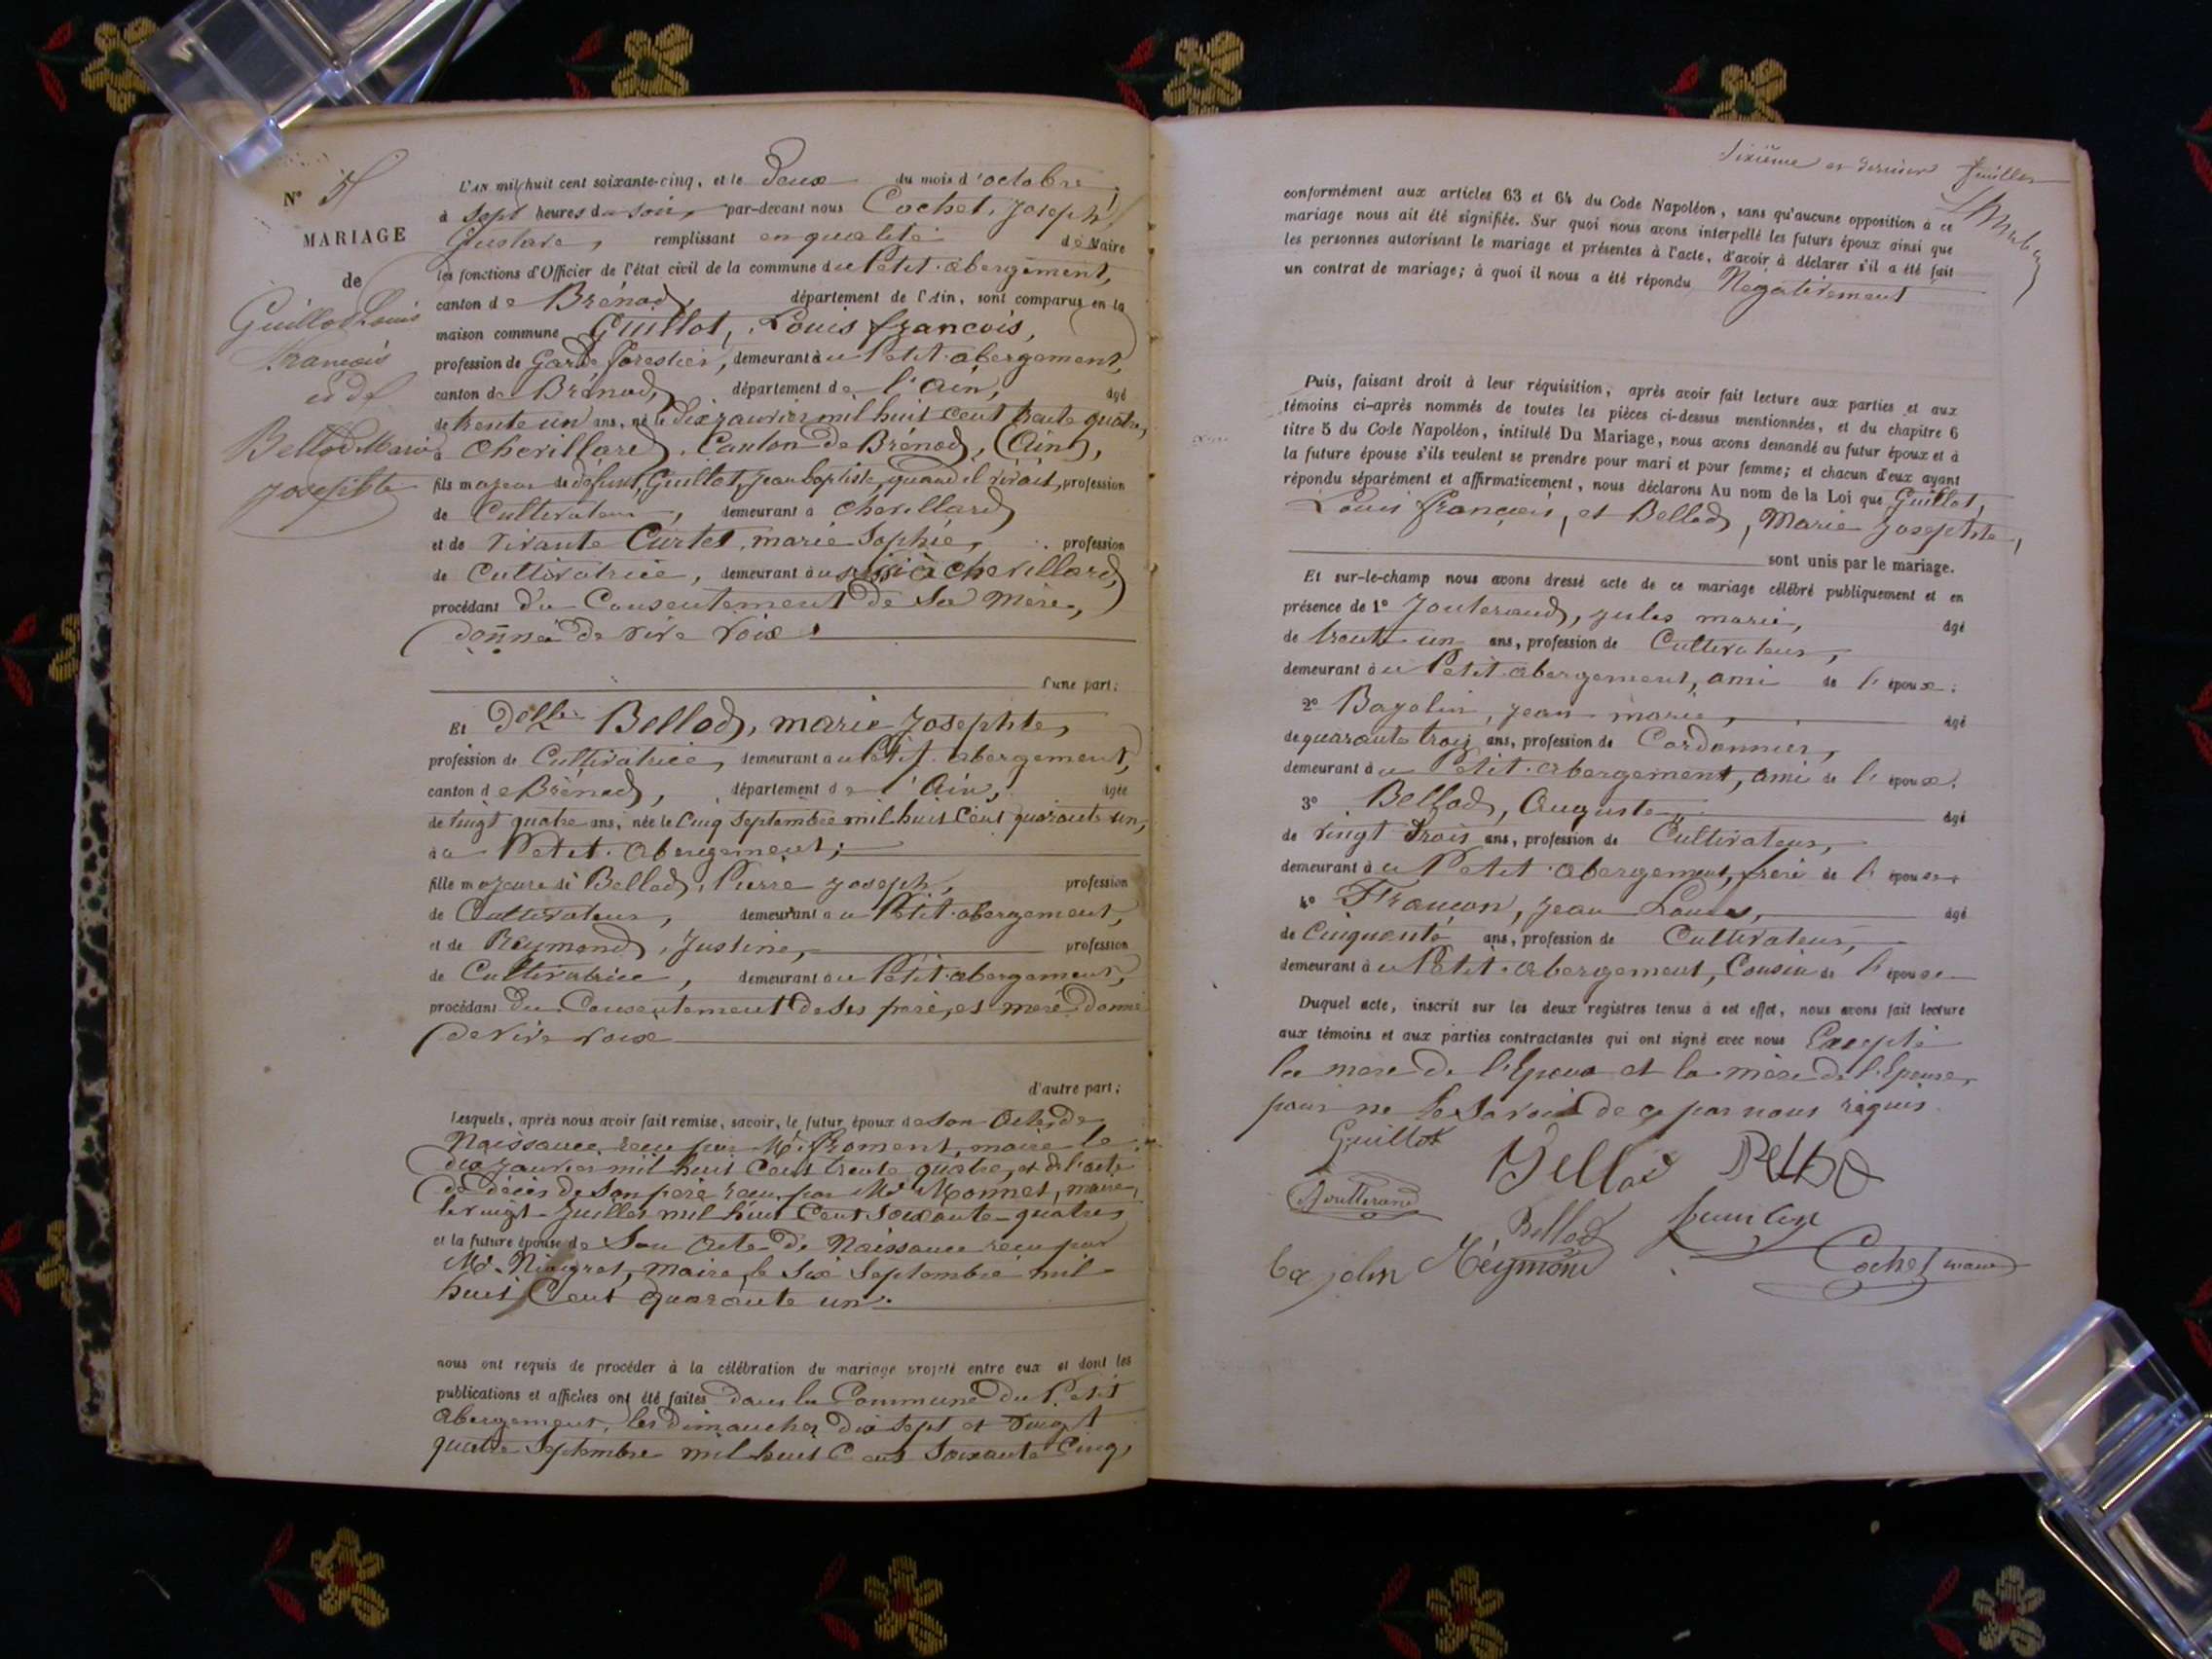 N° 5
MARIAGE
de
Guillot Louis
François
et de
Bellod Marie
Josephte
L'AN mil huit cent soixante-cinq, et le deux du mois d'octobre,
à sept heures du soir, par-devant nous Cochet, Joseph
Gustave, remplissant en qualité de Maire
les fonctions d'Officier de l'état civil de la commune du Petit-abergement,
canton de Brénod, département de l'Ain, sont comparus en la
maison commune Guillot, Louis françois,
profession de Garde forestier, demeurant au Petit-abergement,
canton de Brénod, département de l'Ain, âgé
de trente un ans, né le dix janvier mil huit cent trente quatre,
à Chevillard, Canton de Brénod, (Ain),
fils majeur de défunt, Guillot, Jean Baptiste, quand il vivait, profession
de Cultivateur, demeurant à Chevillard
et de vivante Curtet, marie Sophie, profession
de Cultivatrice, demeurant aussi à Chevillard,
procédant du Consentement de Sa Mère,
donné de vive voix.
d'une part;
Et Delle Bellod, marie Josephte,
profession de Cultivatrice, demeurant au Petit-abergement,
canton de Brénod, département de l'Ain, âgée
de vingt quatre ans, née le Cinq Septembre mil huit Cent quarante un,
au Petit-abergement;
fille majeure de Bellod, Pierre Joseph, profession
de Cultivateur, demeurant au Petit-abergement,
et de Reymond, Justine, profession
de Cultivatrice, demeurant au Petit-abergement,
procédant du Consentement de Ses père, et mère donné
de vive voix
d'autre part;
Lesquels, après nous avoir fait remise, savoir, le futur époux de Son Acte de
Naissance, reçu par Mr. froment, maire le
dix janvier mil huit Cent trente quatre, et de l'acte
de décès de Son père reçu, par Mr Monnet, maire,
le vingt Juillet mil huit Cent Soixante-quatre
et la future épouse de Son Acte de Naissance reçu par
Mr. Niogret, Maire, le Six Septembre mil
huit Cent quarante un.
nous ont requis de procéder à la célébration du mariage projeté entre eux et dont les
publications et affiches ont été faites dans la Commune du Petit
Abergement, les dimanches dix Sept et vingt
quatre Septembre mil huit Cent Soixante Cinq,
Sixième et dernier feuillet
conformément aux articles 63 et 64 du Code Napoléon, sans qu'aucune opposition à ce
mariage nous ait été signifiée. Sur quoi nous avons interpellé les futurs époux ainsi que
les personnes autorisant le mariage et présentes à l'acte, d'avoir à déclarer s'il a été fait
un contrat de mariage; à quoi il nous a été répondu Négativement
Puis, faisant droit à leur réquisition, après avoir fait lecture aux parties et aux
témoins ci-après nommés de toutes les pièces ci-dessus mentionnées, et du chapitre 6
titre 5 du Code Napoléon, intitulé Du Mariage, nous avons demandé au futur époux et à
la future épouse s'ils veulent se prendre pour mari et pour femme; et chacun d'eux ayant
répondu séparément et affirmativement, nous déclarons Au nom de la Loi que Guillot,
Louis françois, et Bellod, Marie Josephte,
sont unis par le mariage.
Et sur-le-champ nous avons dressé acte de ce mariage célébré publiquement et en
présence de 1° Jouterand, jules marie, âgé
de trente un ans, profession de Cultivateur,
demeurant au Petit-abergement, ami de l'époux;
2° Bajolin, jean marie, âgé
de quarante trois ans, profession de Cordonnier,
demeurant au Petit-abergement, ami de l'époux.
3° Bellod, Auguste, âgé
de vingt trois ans, profession de Cultivateur,
demeurant au Petit-abergement, frère de l'épouse.
4° Françon, Jean Louis, âgé
de Cinquante ans, profession de Cultivateur,
demeurant au Petit-abergement, Cousin de l'épouse
Duquel acte, inscrit sur les deux registres tenus à cet effet, nous avons fait lecture
aux témoins et aux parties contractantes qui ont signé avec nous Excepté
la mère de l'Epoux et la mère de l'Epouse,
pour ne le Savoir de ce par nous réquis.
Guillot Bellod
Joutterand
Bellod
bajolin Réymond Cochet maire